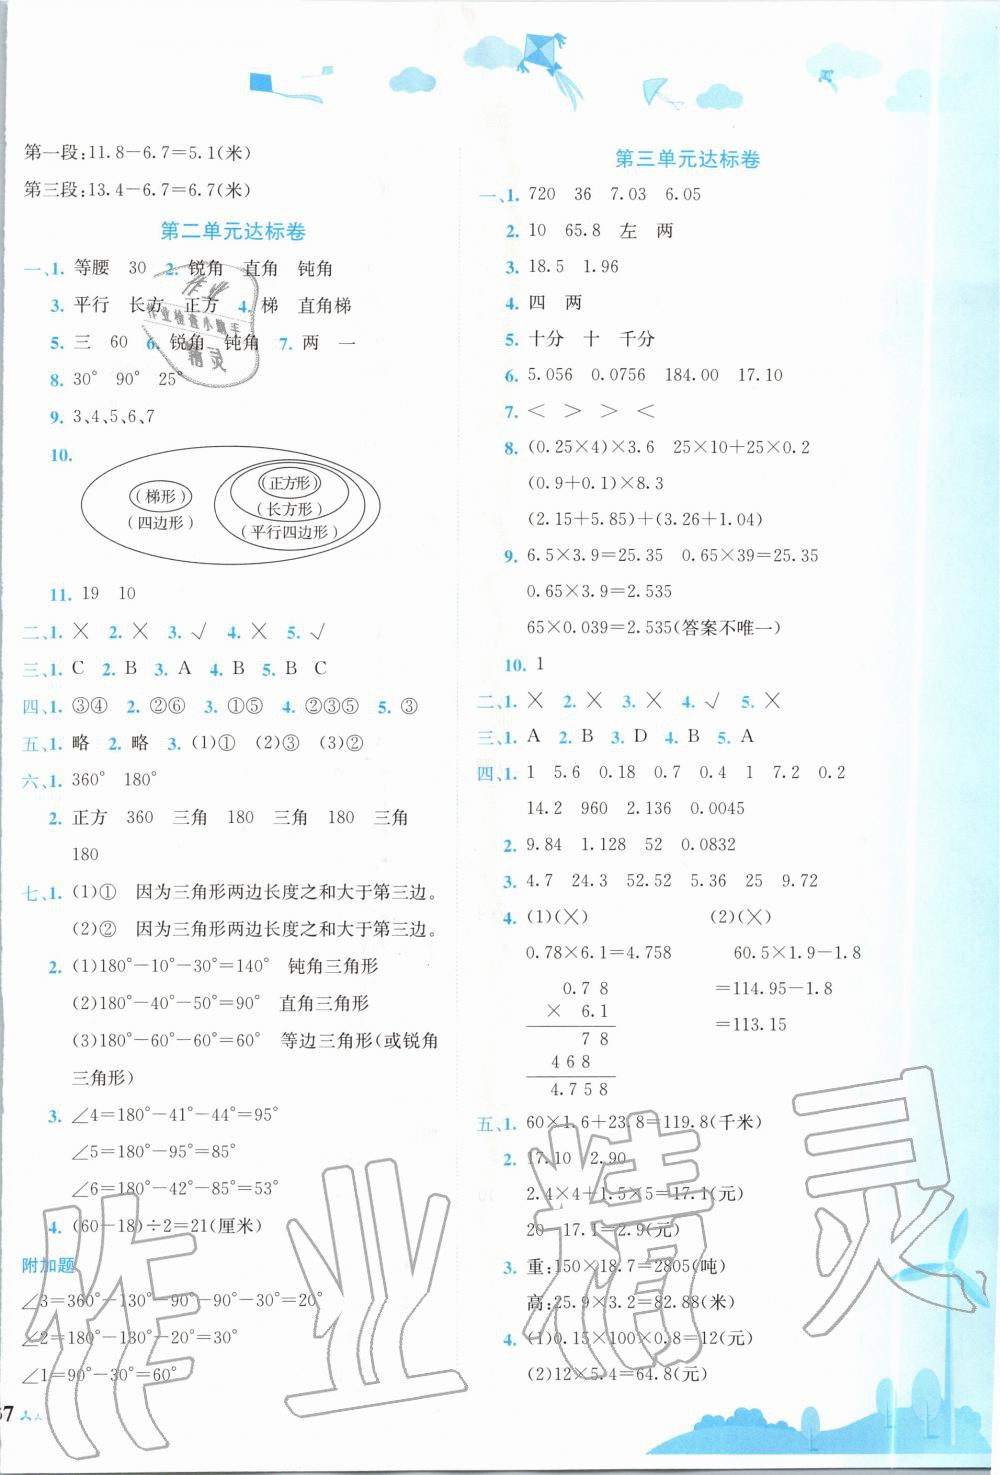 第一段:11.8-6.7=5.1(米)
第三段:13.4-6.7=6.7(米)
第二单元达标卷
一、1. 等腰 30 2. 锐角 直角 钝角
3. 平行 长方 正方 4. 梯 直角梯
5. 三 60 6. 锐角 钝角 7. 两 一
8. 30° 90° 25°
9. 3、4、5、6、7
10.
(梯形)
(四边形)
(正方形)
(长方形)
(平行四边形)
11. 19 10
二、1. × 2. × 3. √ 4. × 5. √
三、1. C 2. B 3. A 4. B 5. B C
四、1. ③④ 2. ②⑥ 3. ①⑤ 4. ②③⑤ 5. ③
五、1. 略 2. 略 3. (1)① (2)③ (3)②
六、1. 360° 180°
2. 正方 360 三角 180 三角 180 三角
180
七、1. (1)① 因为三角形两边长度之和大于第三边。
(2)② 因为三角形两边长度之和大于第三边。
2. (1)180°-10°-30°=140° 钝角三角形
(2)180°-40°-50°=90° 直角三角形
(3)180°-60°-60°=60° 等边三角形(或锐角
三角形)
3. ∠4=180°-41°-44°=95°
∠5=180°-95°=85°
∠6=180°-42°-85°=53°
4. (60-18)÷2=21(厘米)
附加题
∠3=360°-130°-90°-90°-30°=20°
∠2=180°-130°-20°=30°
∠1=90°-30°=60°
67
第三单元达标卷
一、1. 720 36 7.03 6.05
2. 10 65.8 左 两
3. 18.5 1.96
4. 四 两
5. 十分 十 千分
6. 5.056 0.0756 184.00 17.10
7. < > > <
8. (0.25×4)×3.6 25×10+25×0.2
(0.9+0.1)×8.3
(2.15+5.85)+(3.26+1.04)
9. 6.5×3.9=25.35 0.65×39=25.35
0.65×3.9=2.535
65×0.039=2.535(答案不唯一)
10. 1
二、1. × 2. × 3. × 4. √ 5. ×
三、1. A 2. B 3. D 4. B 5. A
四、1. 1 5.6 0.18 0.7 0.4 1 7.2 0.2
14.2 960 2.136 0.0045
2. 9.84 1.128 52 0.0832
3. 4.7 24.3 52.52 5.36 25 9.72
4. (1)(×) (2)(×)
0.78×6.1=4.758 60.5×1.9-1.8
0.78 =114.95-1.8
× 6.1 =113.15
78
468
4.758
五、1. 60×1.6+23.8=119.8(千米)
2. 17.10 2.90
2.4×4+1.5×5=17.1(元)
20-17.1=2.9(元)
3. 重:150×18.7=2805(吨)
高:25.9×3.2=82.88(米)
4. (1)0.15×100×0.8=12(元)
(2)12×5.4=64.8(元)
作业
作业检查小助手
精灵
作业精灵